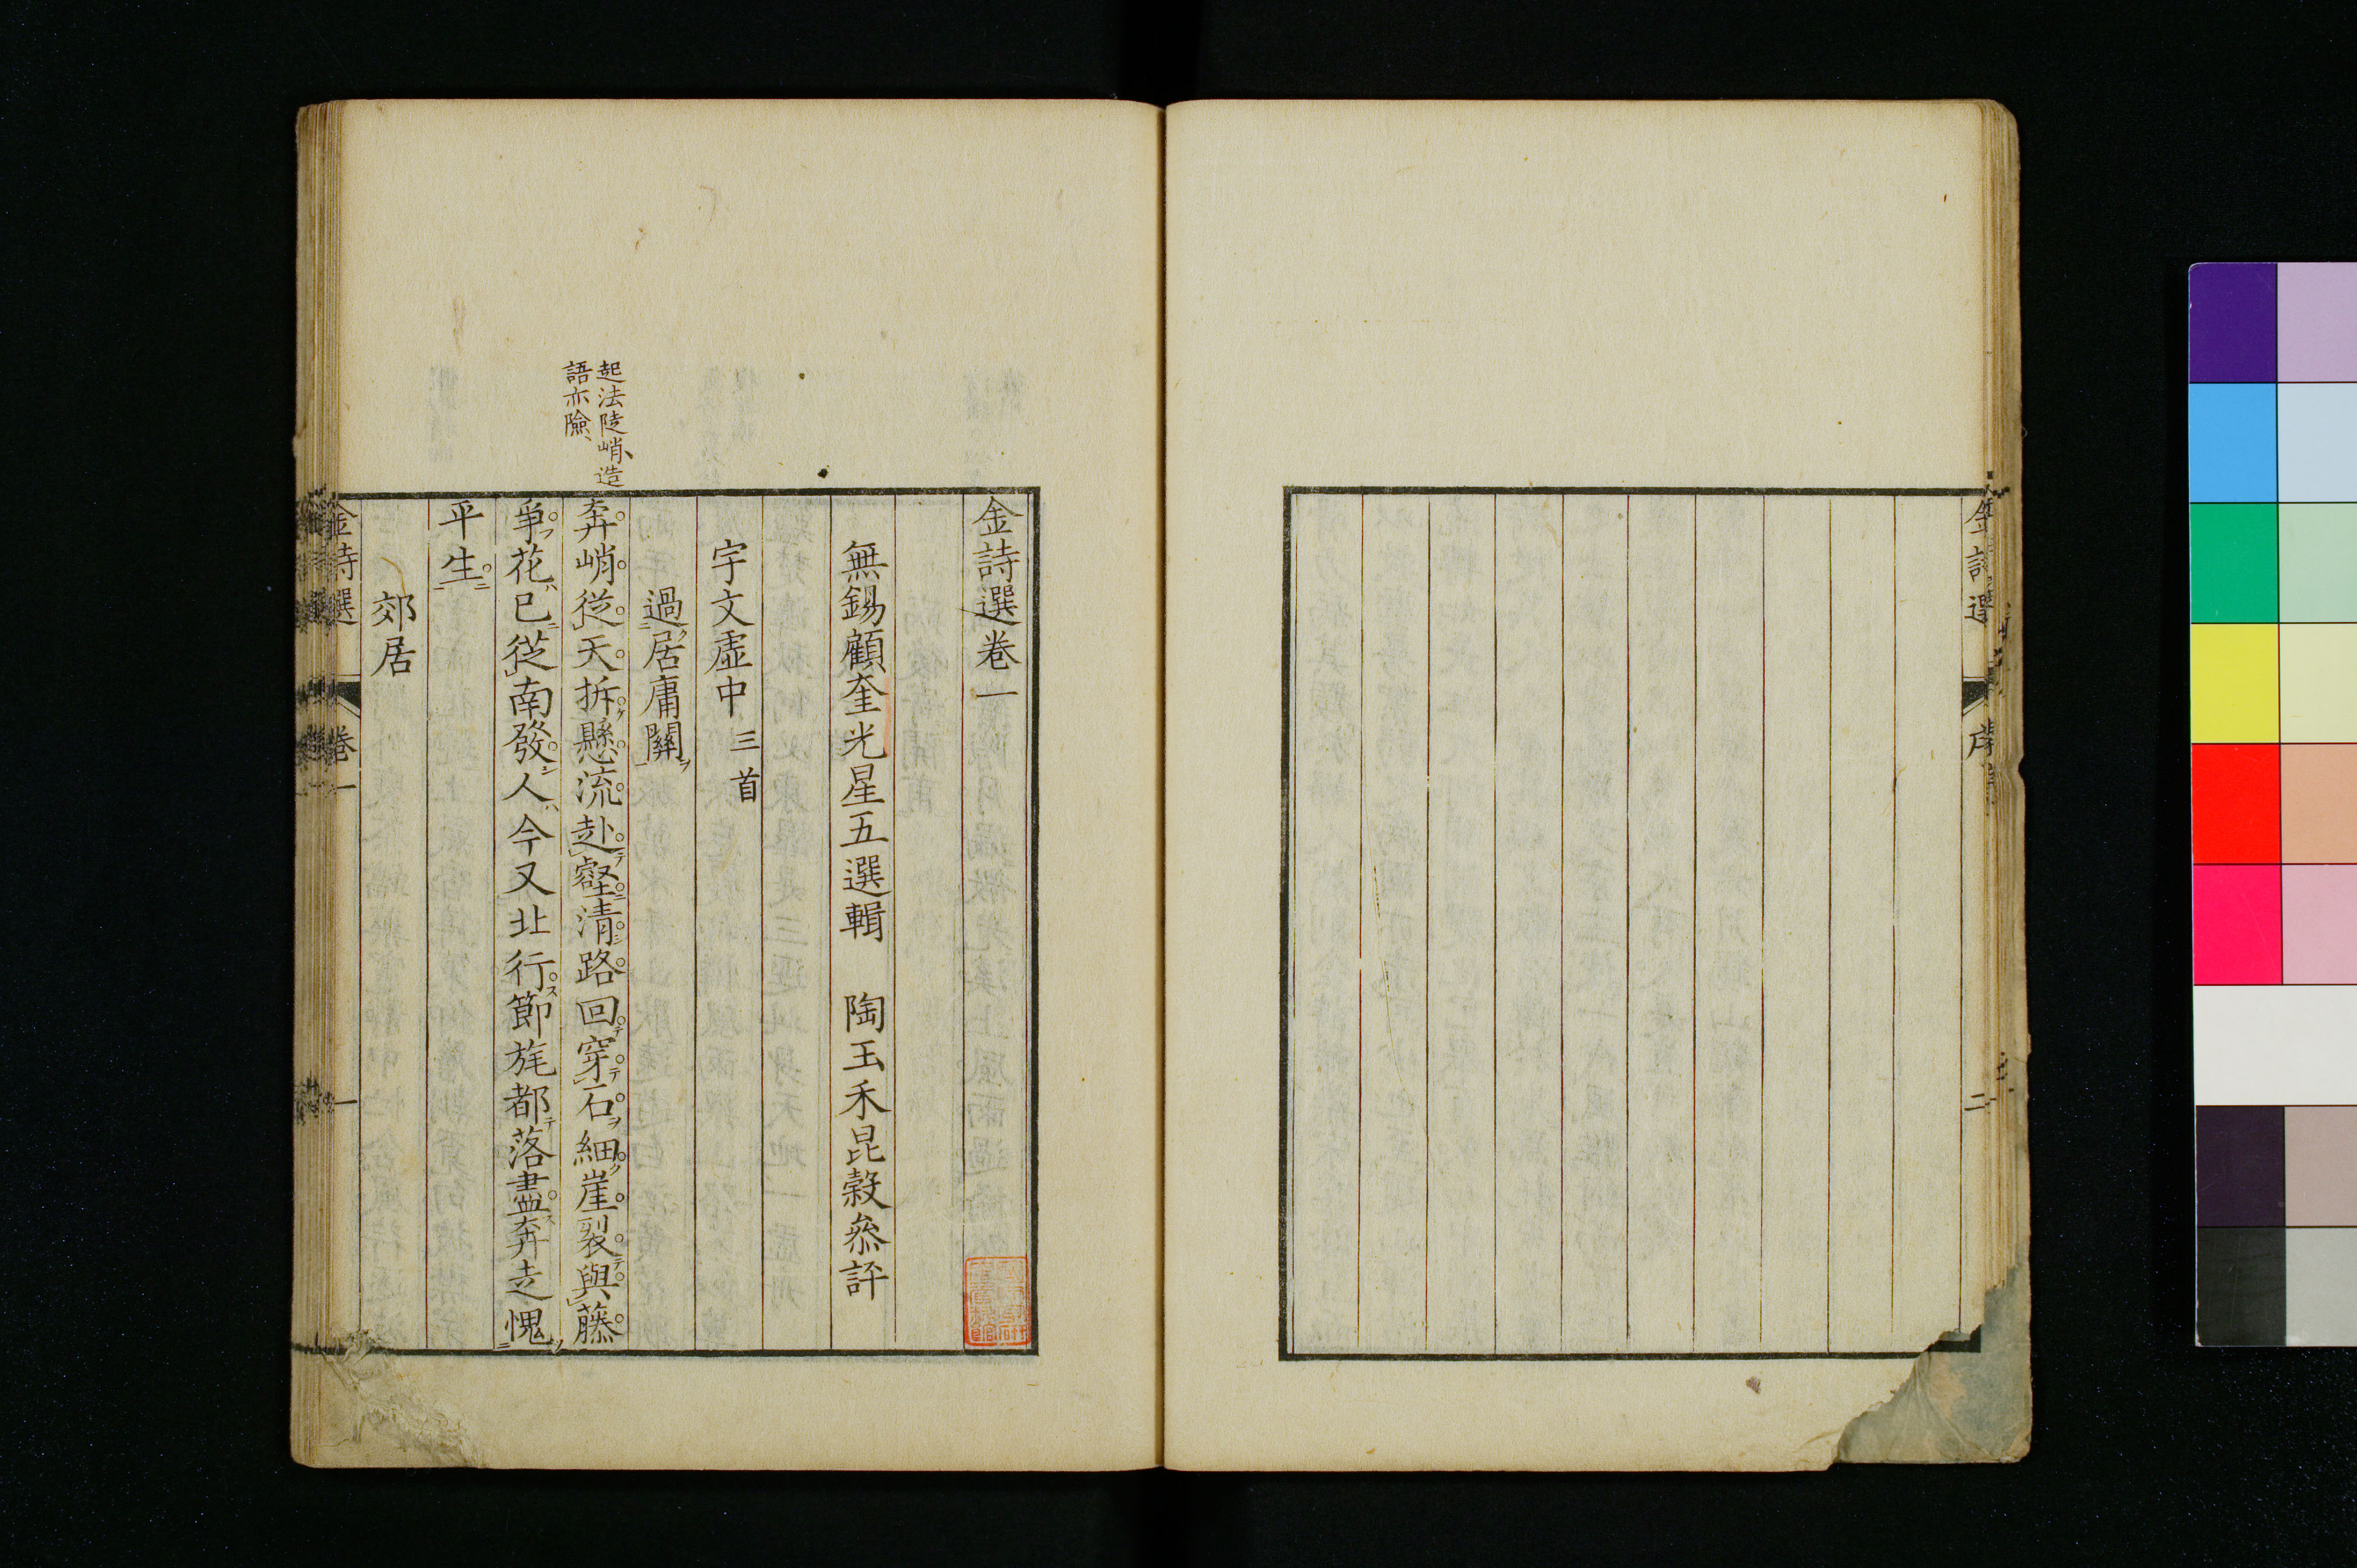 金詩選
序
二
金詩選卷一
無錫顧奎光星五選輯　陶玉禾昆穀叅評
宇文虛中三首
過居庸關
起法陡峭、造
語亦險、
奔峭從天拆懸流赴壑清路回穿石細崖裂與藤
爭花已從南發人今又北行節旄都落盡奔走愧
平生
郊居
金詩選
卷一
一